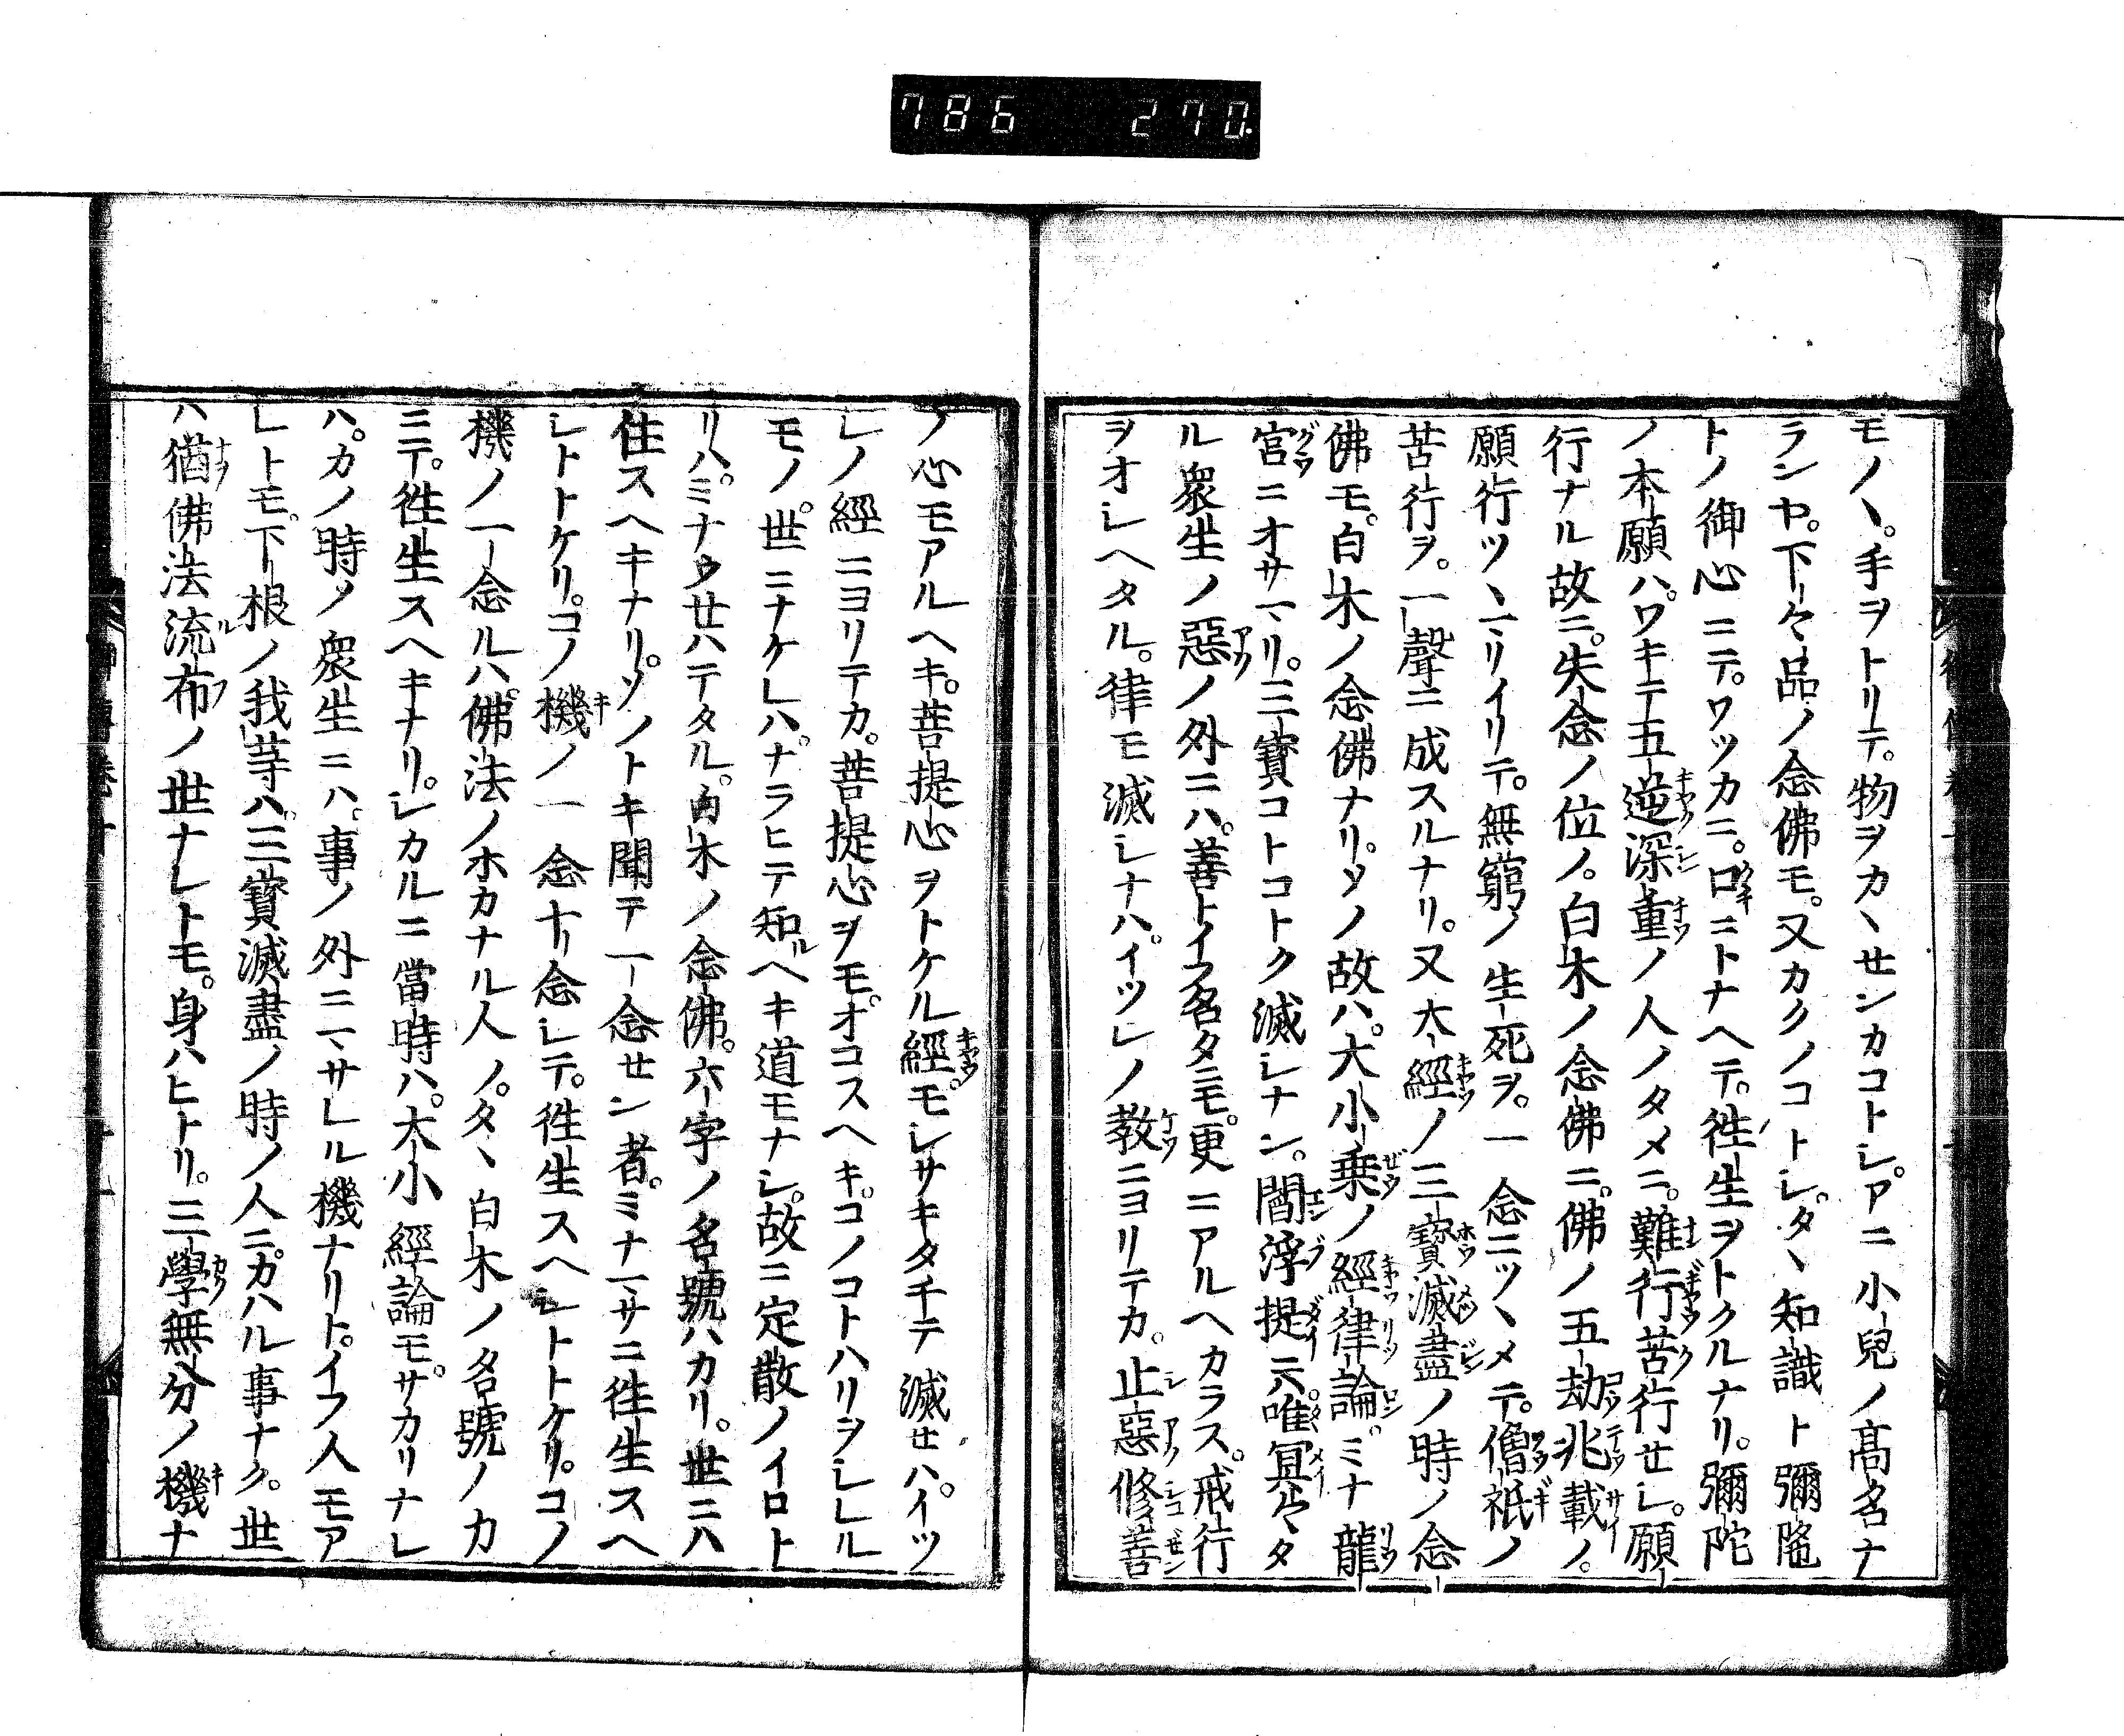 786 270.
モノヽ。手ヲトリテ。物ヲカヽセンカコトシ。アニ小兒ノ髙名ナ
ランヤ。下々品ノ念佛モ。又カクノコトシ。タヽ知識ト彌陀
トノ御心ニテ。ワツカニ。口ニトナヘテ。徃生ヲトクルナリ。彌陀
ノ本願ハ。ワキテ五逆深重ノ人ノタメニ。難行苦行セシ。願
行ナル故ニ。失念ノ位ノ。白木ノ念佛ニ。佛ノ五劫兆載ノ。
願行ツヽマリイリテ。無窮ノ生死ヲ。一念ニツヽメテ。僧祇ノ
苦行ヲ。一聲ニ成スルナリ。又大經ノ三寳滅盡ノ時ノ念
佛モ。白木ノ念佛ナリ。ソノ故ハ。大小乗ノ經律論。ミナ龍
宮ニオサマリ。三寳コトコトク滅シナン。閻浮提ニハ唯冥々タ
ル衆生ノ惡ノ外ニハ。善トイフ名タニモ。更ニアルヘカラス。戒行
ヲオシヘタル。律モ滅シナハ。イツレノ教ニヨリテカ。止惡修善
ノ心モアルヘキ。菩提心ヲトケル經モ。シサキタチテ滅セハ。イツ
レノ經ニヨリテカ。菩提心ヲモオコスヘキ。コノコトハリヲシレル
モノ。世ニナケレハ。ナラヒテ知ルヘキ道モナシ。故ニ定散ノイロト
リハ。ミナウセハテタル。白木ノ念佛。六字ノ名號ハカリ。世ニハ
住スヘキナリ。ソノトキ聞テ一念セン者。ミナマサニ徃生スヘ
シトトケリ。コノ機ノ一念十念シテ。徃生スヘシトトケリ。コノ
機ノ一念ルハ。佛法ノホカナル人ノ。タヽ白木ノ名號ノカ
ニテ。徃生スヘキナリ。シカルニ當時ハ。大小經論モ。サカリナレ
ハ。カノ時ノ衆生ニハ。事ノ外ニマサレル機ナリト。イフ人モア
レトモ。下根ノ我等ハ。三寳滅盡ノ時ノ人ニ。カハル事ナク。世
ハ猶佛法流布ノ世ナレトモ。身ハヒトリ。三學無分ノ機ナ